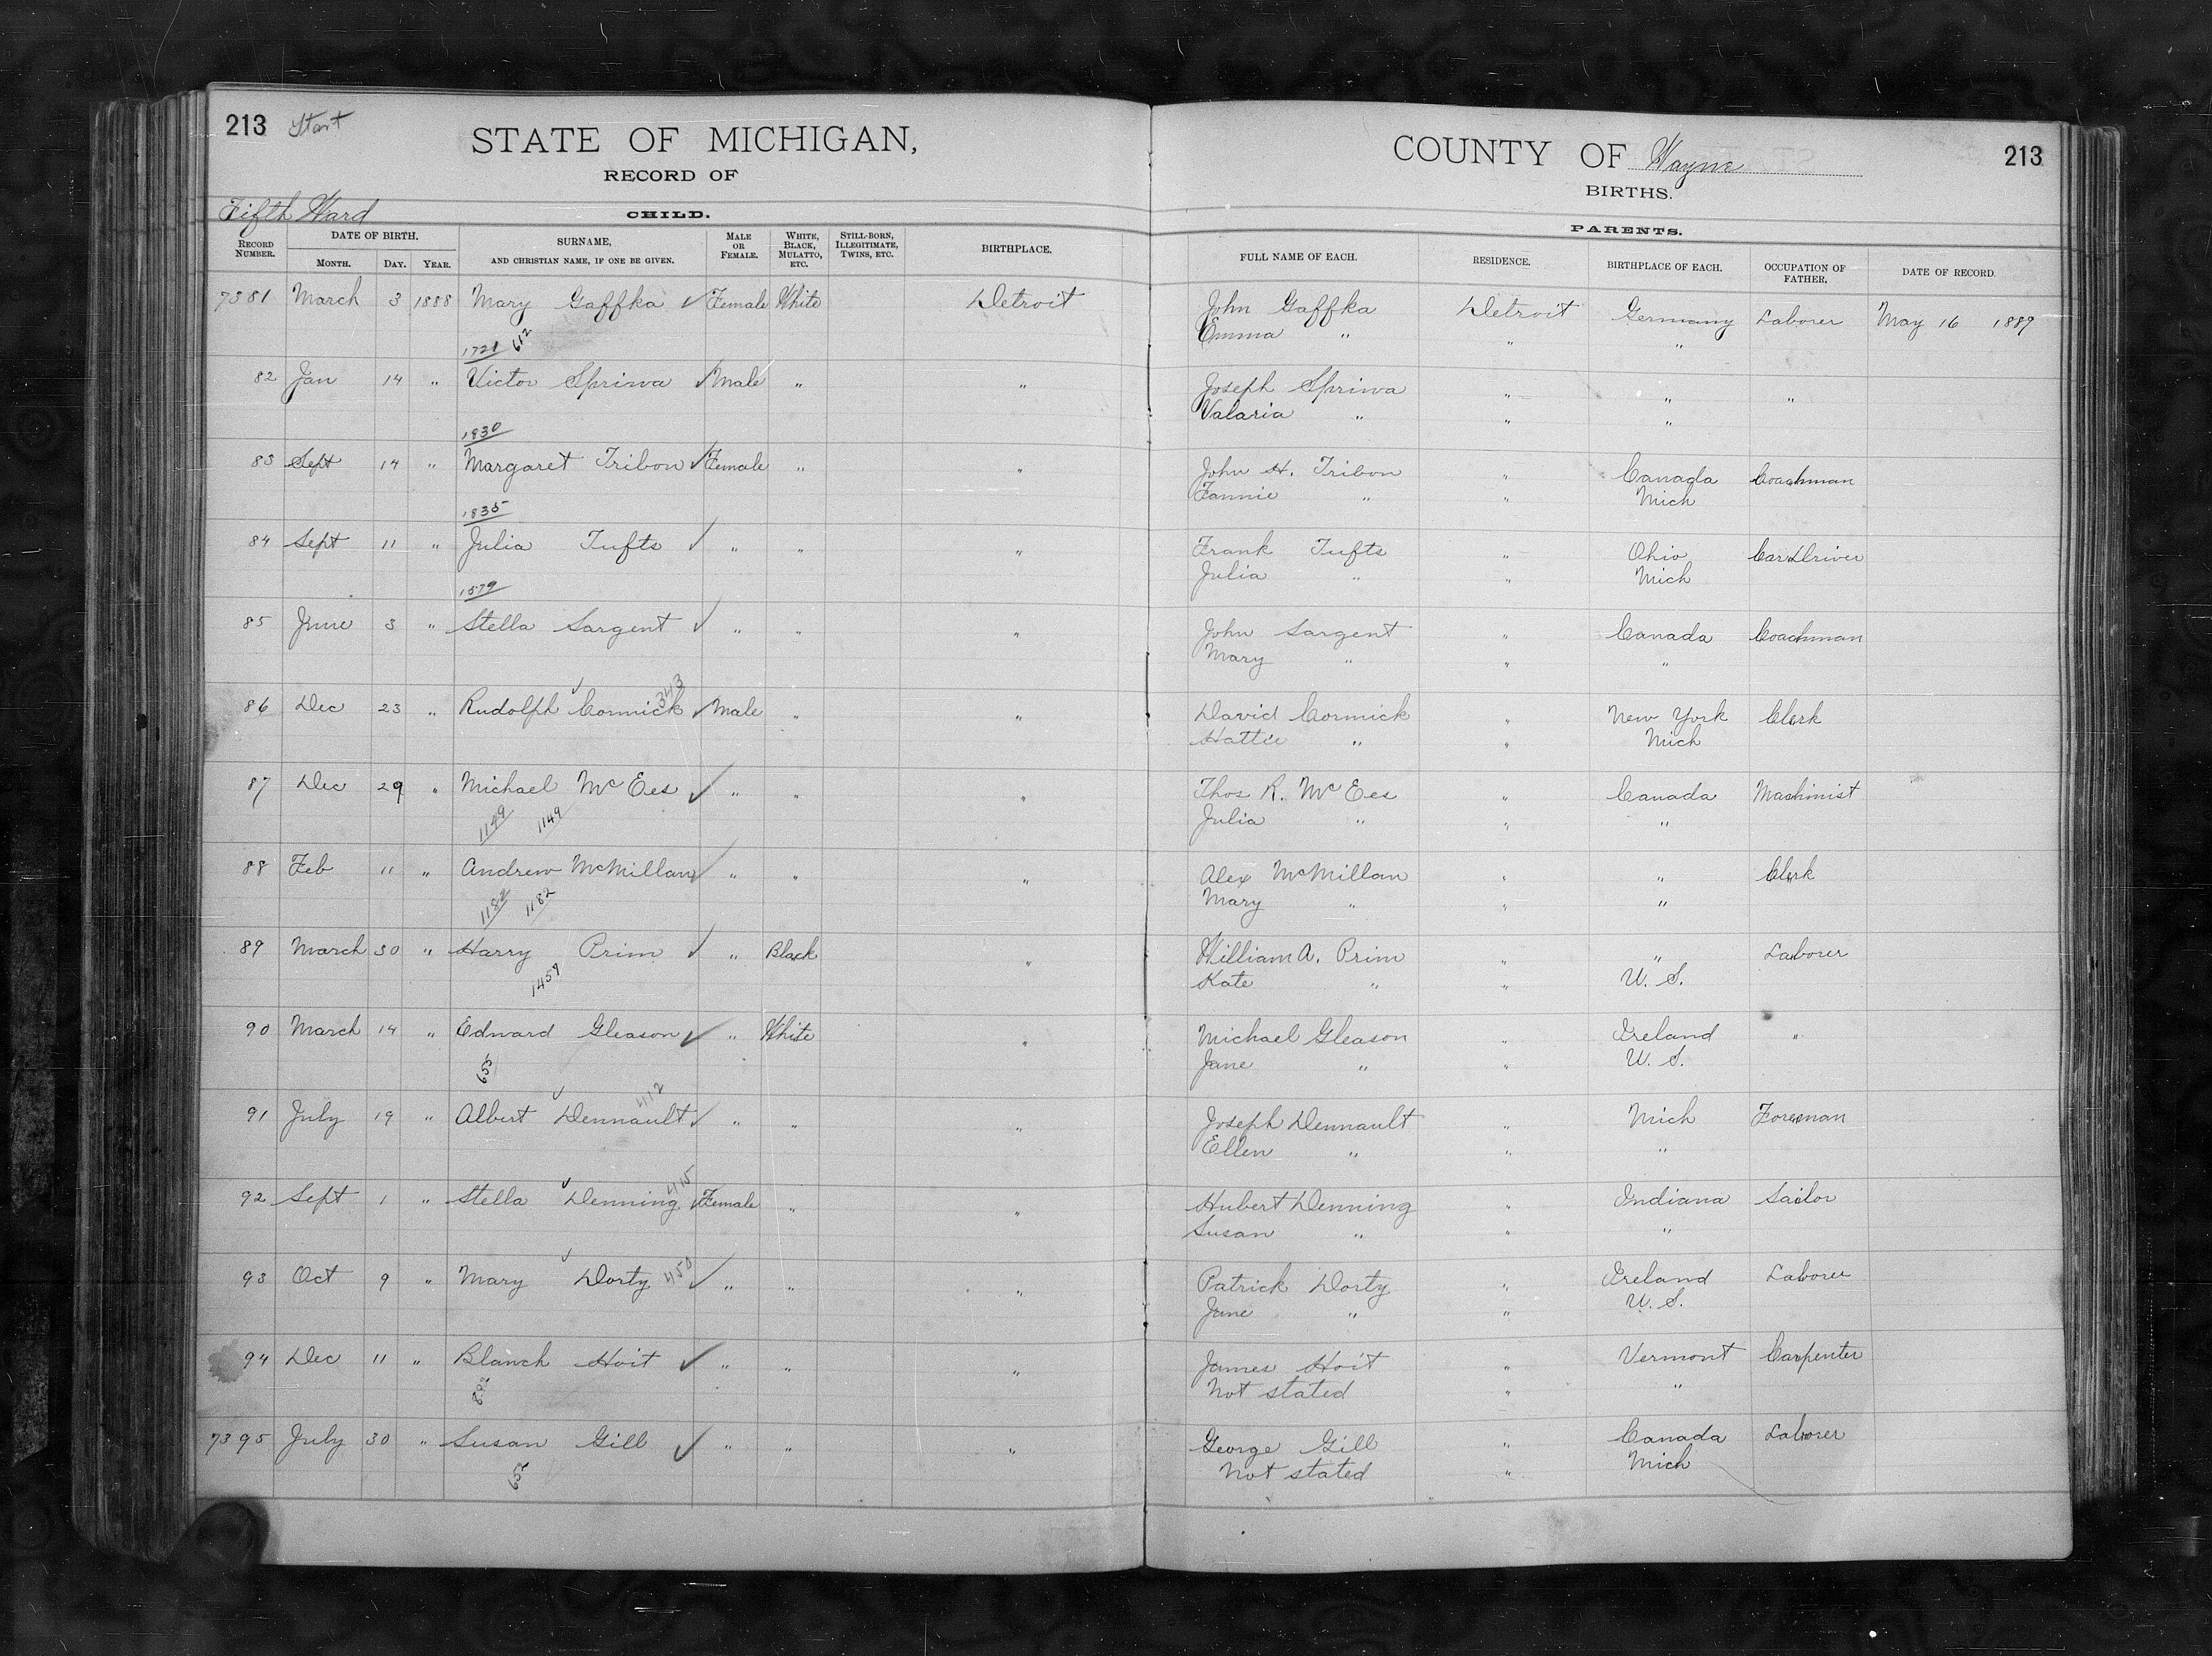 213 Start
STATE OF MICHIGAN,
RECORD OF
Fifth Ward
CHILD.
RECORD NUMBER. DATE OF BIRTH. MONTH. DAY. YEAR. SURNAME, AND CHRISTIAN NAME, IF ONE BE GIVEN. MALE OR FEMALE. WHITE, BLACK, MULATTO, ETC. STILL-BORN, ILLEGITIMATE, TWINS, ETC. BIRTHPLACE.
7381 March 3 1888 Mary Gaffka ✓ Female White Detroit
1721 612
82 Jan 14 " Victor Spriwa ✓ Male " "
1830
83 Sept 14 " Margaret Tribon ✓ Female " "
1835
84 Sept 11 " Julia Tufts ✓ " " "
1579
85 June 3 " Stella Sargent ✓ " " "
86 Dec 23 " Rudolph Cormick 343 ✓ Male " "
87 Dec 29 " Michael McEes ✓ " " "
1149 1149
88 Feb 11 " Andrew McMillan ✓ " " "
1182 1182
89 March 30 " Harry Prim ✓ " Black "
1459
90 March 14 " Edward Gleason ✓ " White "
655
91 July 19 " Albert Dennault 412 ✓ " " "
92 Sept 1 " Stella Denning 415 ✓ Female " "
93 Oct 9 " Mary Dorty 450 ✓ " " "
94 Dec 11 " Blanch Hoit ✓ " " "
7395 July 30 " Susan Gill ✓ " " "
COUNTY OF Wayne 213
BIRTHS.
PARENTS.
FULL NAME OF EACH. RESIDENCE. BIRTHPLACE OF EACH. OCCUPATION OF FATHER. DATE OF RECORD.
John Gaffka Detroit Germany Laborer May 16 1889
Emma " " "
Joseph Spriwa " " "
Valaria " " "
John H. Tribon " Canada Coachman
Fannie " " Mich
Frank Tufts " Ohio Car Driver
Julia " " Mich
John Sargent " Canada Coachman
Mary " " "
David Cormick " New York Clerk
Hattie " " Mich
Thos R. McEes " Canada Machinist
Julia " " "
Alex McMillan " " Clerk
Mary " " "
William A. Prim " " Laborer
Kate " " U. S.
Michael Gleason " Ireland "
Jane " " U. S.
Joseph Dennault " Mich Foreman
Ellen " " "
Hubert Denning " Indiana Sailor
Susan " " "
Patrick Dorty " Ireland Laborer
Jane " " U. S.
James Hoit " Vermont Carpenter
Not stated " "
George Gill " Canada Laborer
Not stated " Mich